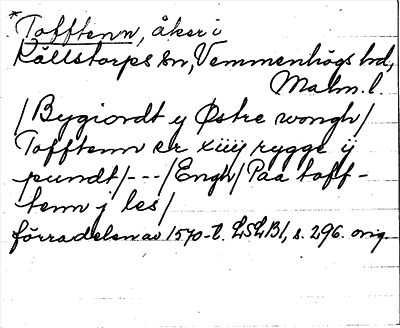 *Tofftenn, åker i
Källstorps sn, Vemmenhögs hd,
Malm. l.
/Bygiordt y Østre wongh/
Tofftenn er xiiij rygge ij
pundt/---/Engh/Paa toff-
tenn j les/
förra delen av 1570-t. LSLB1, s. 296. orig.